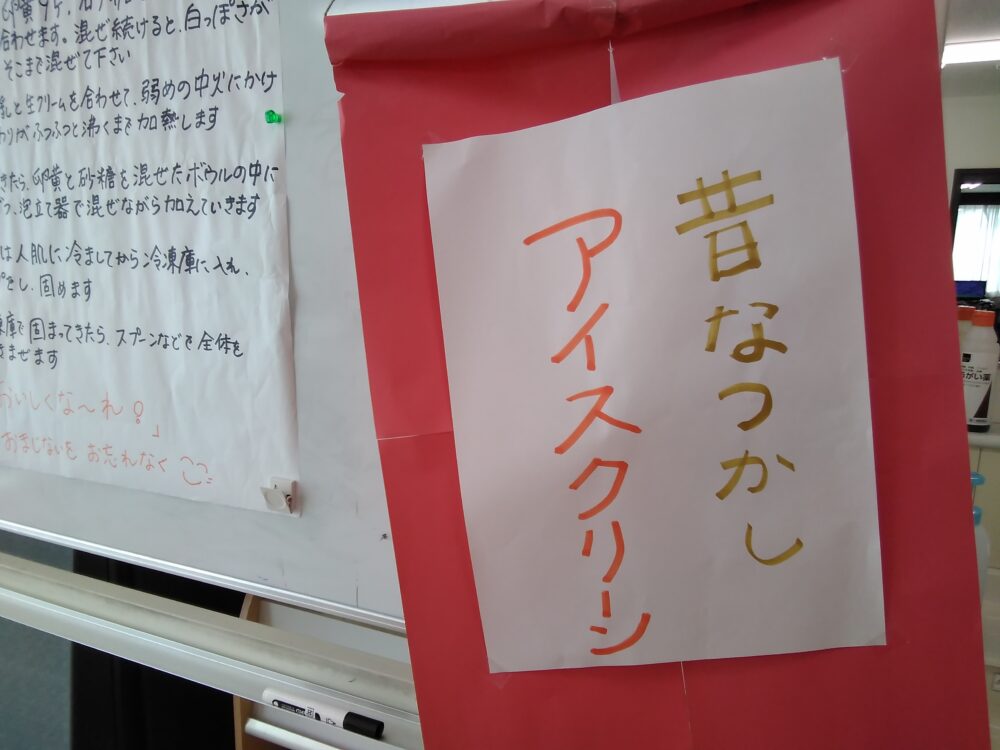 昔なつかし
アイスクリーン
合わせます。混ぜ続けると、白っぽさが
そこまで混ぜて下さい
乳と生クリームを合わせて、弱めの中火にかけ
わりがふつふつと沸くまで加熱します
きたら、卵黄と砂糖を混ぜたボウルの中に
つ、泡立て器で混ぜながら加えていきます
は人肌に冷ましてから冷凍庫に入れ、
をし、固めます
凍庫で固まってきたら、スプーンなどで全体を
きまぜます
おいしくな〜れ!」
おまじないをお忘れなく
がい薬